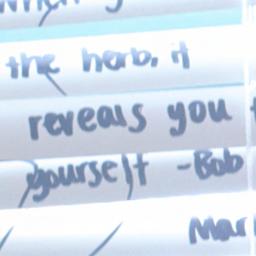 the herb, it
reveals you t
yourself -Bob
Mar